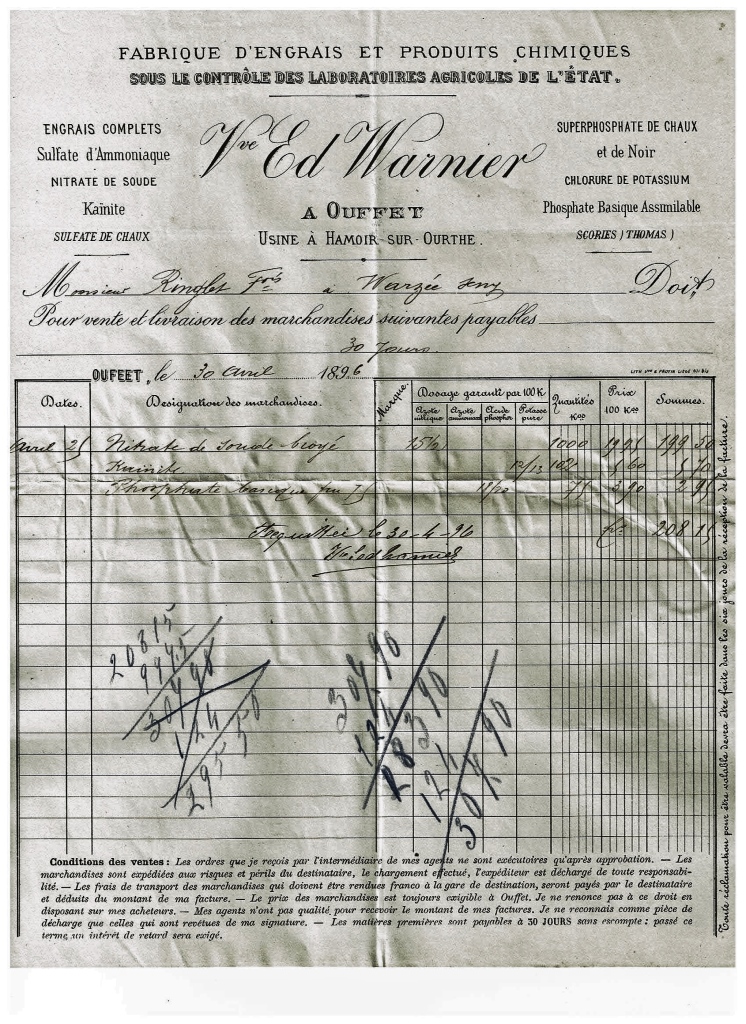 FABRIQUE D'ENGRAIS ET PRODUITS CHIMIQUES
SOUS LE CONTRÔLE DES LABORATOIRES AGRICOLES DE L'ÉTAT.
ENGRAIS COMPLETS
Sulfate d'Ammoniaque
NITRATE DE SOUDE
Kaïnite
SULFATE DE CHAUX
Vve Ed Warnier
A OUFFET
USINE À HAMOIR-SUR-OURTHE.
SUPERPHOSPHATE DE CHAUX
et de Noir
CHLORURE DE POTASSIUM
Phosphate Basique Assimilable
SCORIES (THOMAS)
Monsieur Ringlet Fois à Warzée Doit
Pour vente et livraison des marchandises suivantes payables
30 Jours.
OUFEET, le 30 avril 1896
Dates. Désignation des marchandises. Marque. Dosage garanti par 100 K Quantités Kos Prix 100 Kos Sommes.
Azote nitrique Azote ammoniacal Acide phosphor Potasse pure
avril 25 Nitrate de soude broyé 15% 1000 19 95 199 50
Kainite 12/13 102 5 60 5 70
Phosphate basique 18/20 75 3 90 2 95
fr. 208 15
Acquittée le 30-4-96
20815
9475
30490
124
295 50
304,90
124
28390
124
304,90
Conditions des ventes : Les ordres que je reçois par l'intermédiaire de mes agents ne sont exécutoires qu'après approbation. — Les
marchandises sont expédiées aux risques et périls du destinataire, le chargement effectué, l'expéditeur est déchargé de toute responsabi-
lité. — Les frais de transport des marchandises qui doivent être rendues franco à la gare de destination, seront payés par le destinataire
et déduits du montant de ma facture. — Le prix des marchandises est toujours exigible à Ouffet. Je ne renonce pas à ce droit en
disposant sur mes acheteurs. — Mes agents n'ont pas qualité pour recevoir le montant de mes factures. Je ne reconnais comme pièce de
décharge que celles qui sont revêtues de ma signature. — Les matières premières sont payables à 30 JOURS sans escompte : passé ce
terme un intérêt de retard sera exigé.
Toute réclamation pour être valable devra être faite dans les six jours de la réception de la facture.